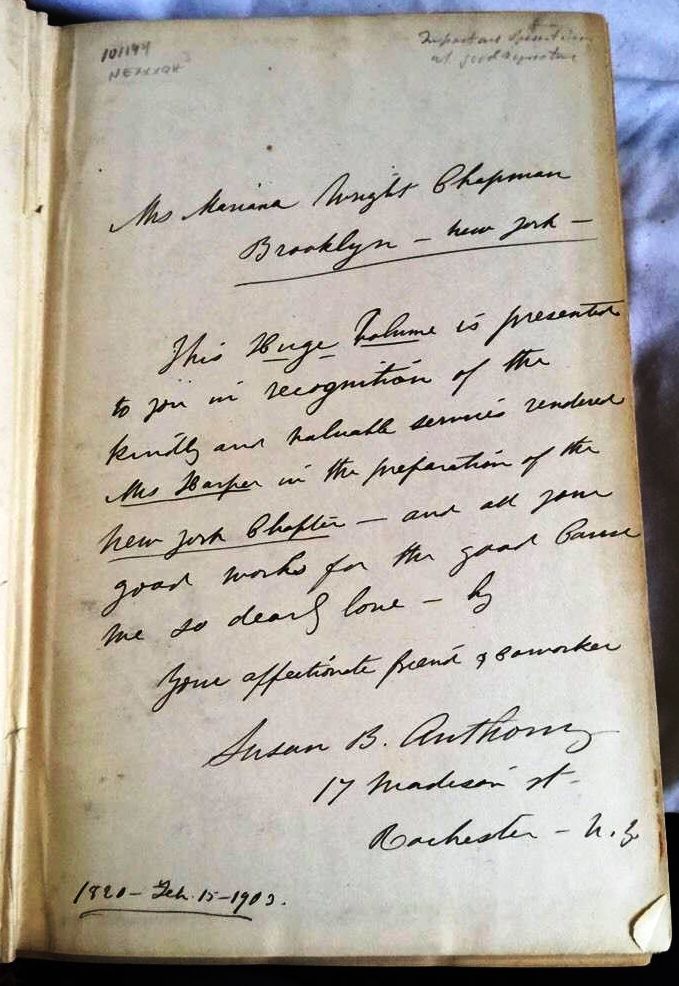 101194
Important
at good
Mrs Mariana Wright Chapman
Brooklyn — New York —
This Huge Volume is presented
to you in recognition of the
kindly and valuable services rendered
Mrs Harper in the preparation of the
New York Chapter — and all your
good works for the good Cause
we so dearly love — by
Your affectionate friend & coworker
Susan B. Anthony
17 Madison st-
Rochester — N.Y.
1820 — Feb. 15 — 1903.